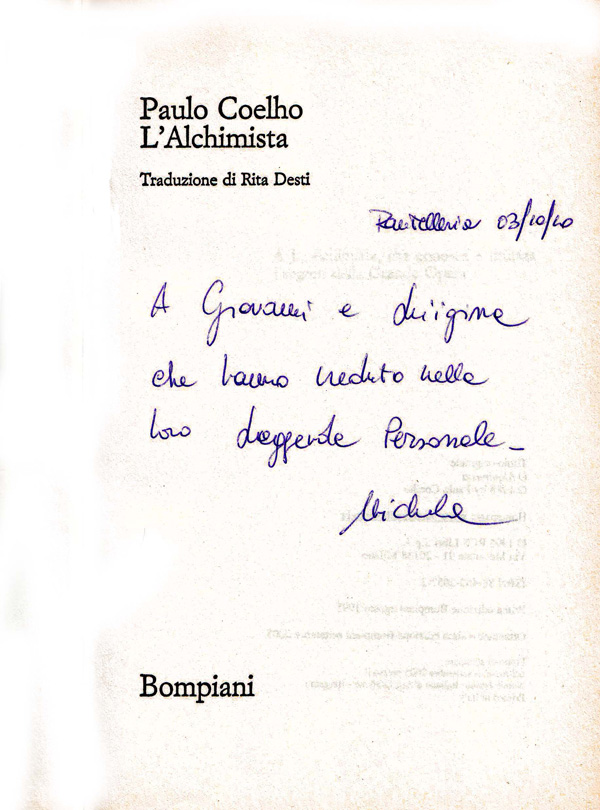 Paulo Coelho
L'Alchimista
Traduzione di Rita Desti
Pantelleria 03/10/10
A Giovanni e Luigina
che hanno creduto nella
loro Leggenda Personale_
Michele
Bompiani